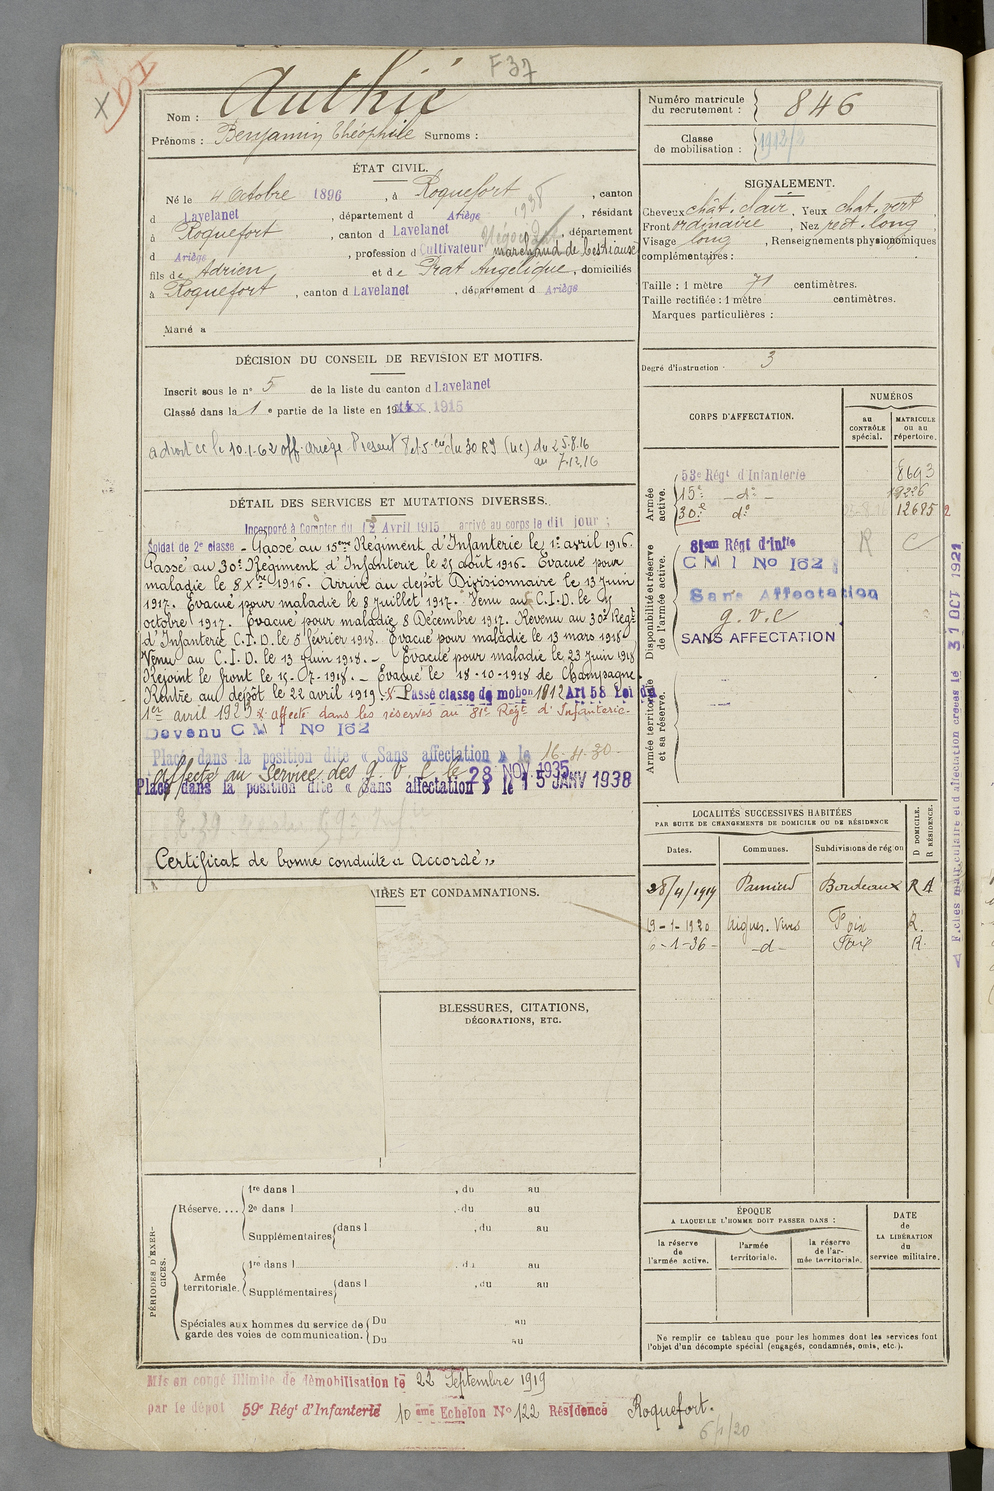 F37
Nom : Authié
Prénoms : Benjamin Théophile Surnoms :
Numéro matricule du recrutement : 846
Classe de mobilisation : 1912/
ÉTAT CIVIL.
Né le 4 Octobre 1896, à Roquefort, canton
d Lavelanet, département d Ariège, résidant
à Roquefort, canton d Lavelanet, département
d Ariège, profession d Cultivateur marchand de bestiaux
fils de Adrien et de Prat Angélique, domiciliés
à Roquefort, canton d Lavelanet, département d Ariège
Marié a
1938
SIGNALEMENT.
Cheveux chât. clair, Yeux chat. vert,
Front ordinaire, Nez rect. long,
Visage long, Renseignements physionomiques
complémentaires :
Taille : 1 mètre 71 centimètres.
Taille rectifiée : 1 mètre centimètres.
Marques particulières :
Degré d'instruction : 3
DÉCISION DU CONSEIL DE REVISION ET MOTIFS.
Inscrit sous le n° 5 de la liste du canton d Lavelanet
Classé dans la 1 e partie de la liste en 19 1915
a droit cc le 10.1.62 off. Ariège. Présent 8 et 5 cu du 30 RI (uc) du 25.8.16
au 7.12.16
DÉTAIL DES SERVICES ET MUTATIONS DIVERSES.
Incorporé à Compter du 12 Avril 1915 arrivé au corps le dit jour ;
Soldat de 2e classe - Passé au 15eme Régiment d'Infanterie le 1er avril 1916.
Passé au 30e Régiment d'Infanterie le 25 août 1916. Evacué pour
maladie le 8 Xbre 1916. Arrivé au depôt Divisionnaire le 13 Juin
1917. Evacué pour maladie le 8 juillet 1917. Venu au C.I.D. le
octobre 1917. Evacué pour maladie 8 Décembre 1917. Revenu au 30e Régt
d'Infanterie C.I.D. le 5 février 1918. Evacué pour maladie le 13 mars 1918
Venu au C.I.D. le 13 Juin 1918. - Evacué pour maladie le 23 Juin 1918
Rejoint le front le 15-07-1918. - Evacué le 18-10-1918 de Champagne
Rentré au depôt le 22 avril 1919 - x - Passé classe de mobon 1912 Art 58 Loi du
1er avril 1923 x affecté dans les réserves au 81e Régt d'Infanterie.
Devenu C M I No 162
Placé dans la position dite « Sans affectation » le 16-11-30-
Affecté au Service des g. v. c le 28 NOV 1935
Placé dans la position dite « Sans affectation » le 15 JANV 1938
Certificat de bonne conduite « accordé »
AIRES ET CONDAMNATIONS.
BLESSURES, CITATIONS,
DÉCORATIONS, ETC.
CORPS D'AFFECTATION.
NUMÉROS
au CONTRÔLE spécial.
MATRICULE OU au répertoire.
Armée active.
53e Régt d'Infanterie 8693
15e - do -
30e do 12685
Disponibilité et réserve de l'armée active.
81em Régt d'Infie R C
C M I No 162
Sans Affectation
g. v. c
SANS AFFECTATION
Armée territoriale et sa réserve.
LOCALITÉS SUCCESSIVES HABITÉES
PAR SUITE DE CHANGEMENTS DE DOMICILE OU DE RÉSIDENCE
Dates. Communes. Subdivisions de région
D DOMICILE. R RÉSIDENCE.
28/4/1919 Pamiers Bordeaux R A
19-1-1920 Aigues-Vives Foix R.
6-1-36- -d- Foix R.
Fiches matriculaire et d'affectation créées le 31 OCT 1921
PÉRIODES D'EXERCICES.
Réserve....
1re dans l , du au
2e dans l , du au
Supplémentaires (dans l , du au
Armée territoriale.
1re dans l , du au
Supplémentaires (dans l , du au
Spéciales aux hommes du service de garde des voies de communication.
Du au
Du au
ÉPOQUE
A LAQUELLE L'HOMME DOIT PASSER DANS :
la réserve de l'armée active.
l'armée territoriale.
la réserve de l'armée territoriale.
DATE de LA LIBÉRATION du service militaire.
Ne remplir ce tableau que pour les hommes dont les services font
l'objet d'un décompte spécial (engagés, condamnés, omis, etc.).
Mis en congé illimité de démobilisation le 22 Septembre 1919
par le dépôt 59e Régt d'Infanterie 10 ème Echelon No 122 Résidence Roquefort.
6/1/20